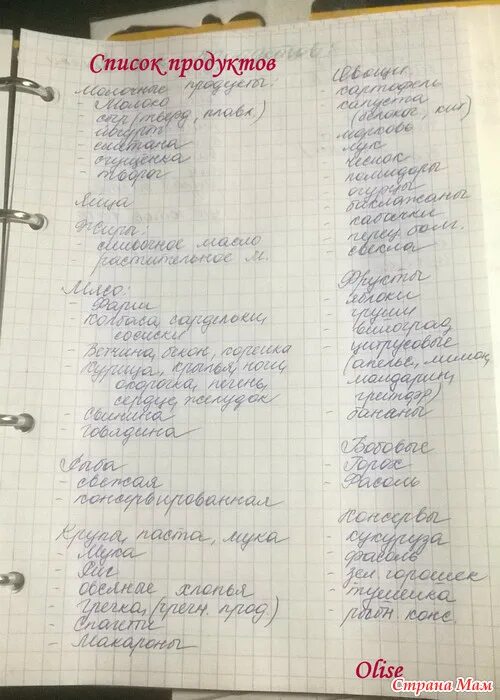 Список продуктов
Молочные продукты:
- Молоко
- сыр (тверд, плавл)
- йогурт
- сметана
- сгущенка
- творог
Яйца
Жиры:
- сливочное масло
- растительное м.
Мясо:
- Фарш
- Колбаса, сардельки,
сосиски
- Ветчина, бекон, корейка
- Курица, крылья, ноги,
окорочка, печень,
сердце, желудок
- Свинина
- Говядина
Рыба
- свежая
- консервированная
Крупы, паста, мука
- Мука
- Рис
- овсяные хлопья
- гречка, (гречн. прод)
- Спагетти
- Макароны
Овощи
- картофель
- капуста
(белокоч, кит)
- морковь
- лук
- чеснок
- помидоры
- огурцы
- баклажаны
- кабачки
- перец болг.
- свекла
Фрукты
- яблоки
- груши
- виноград
- цитрусовые
(апельс, лимон,
мандарин,
грейпфр)
- бананы
Бобовые
- Горох
- Фасоль
Консервы
- кукуруза
- фасоль
- зел. горошек
- тушенка
- рыбн. конс.
Olise
Страна Мам